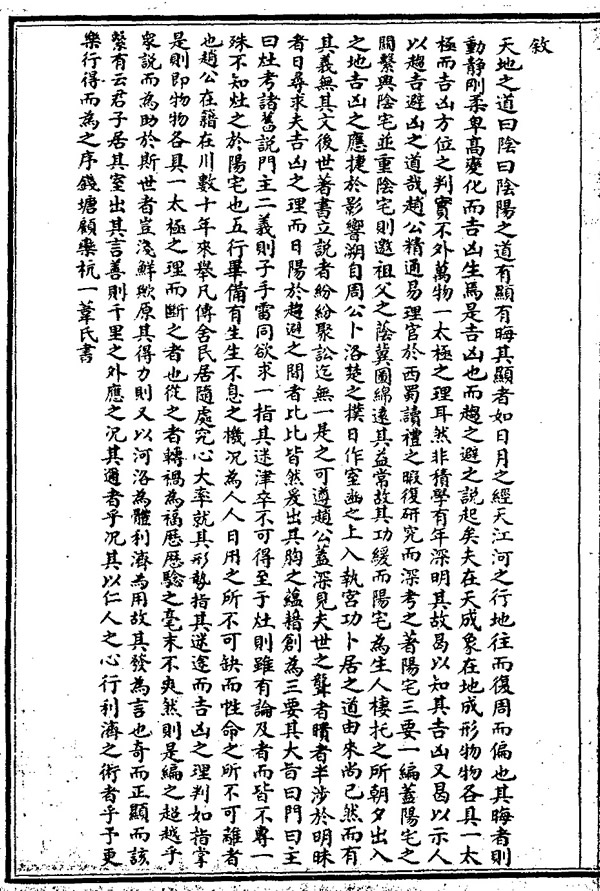 敘
天地之道曰陰曰陽陰陽之道有顯有晦其顯者如日月之經天江河之行地往而復周而偏也其晦者則
動靜剛柔卑高變化而吉凶生焉是吉凶也而趨之避之說起矣夫在天成象在地成形物物各具一太
極而吉凶方位之判實不外萬物一太極之理耳然非積學有年深明其故曷以知其吉凶又曷以示人
以趨吉避凶之道哉趙公精通易理官於西蜀讀禮之暇復研究而深考之著陽宅三要一編蓋陽宅之
關繫與陰宅並重陰宅則邀祖父之蔭冀圖綿遠其益常故其功緩而陽宅為生人棲托之所朝夕出入
之地吉凶之應捷於影響溯自周公卜洛楚之揆日作室豳之上入執宮功卜居之道由來尚已然而有
其義無其文後世著書立說者紛紛聚訟迄無一是之可遵趙公蓋深見夫世之聾者聵者半涉於明昧
者日尋求夫吉凶之理而日陽於趨避之間者比比皆然爰出其胸之蘊藉創為三要其大旨曰門曰主
曰灶考諸舊說門主二義則子手雷同欲求一指其迷津卒不可得至于灶則雖有論及者而皆不專一
殊不知灶之於陽宅也五行畢備有生生不息之機況為人人日用之所不可缺而性命之所不可離者
也趙公在籍在川數十年來舉凡傳舍民居隨處究心大率就其形勢指其迷途而吉凶之理判如指掌
是則即物物各具一太極之理而斷之者也從之者轉禍為福歷歷驗之毫末不爽然則是編之超越乎
眾說而為助於斯世者豈淺鮮歟原其得力則又以河洛為體利濟為用故其發為言也奇而正顯而該
繫有云君子居其室出其言善則千里之外應之況其邇者乎況其以仁人之心行利濟之術者乎予更
樂行得而為之序錢塘顧樂杭一葦氏書